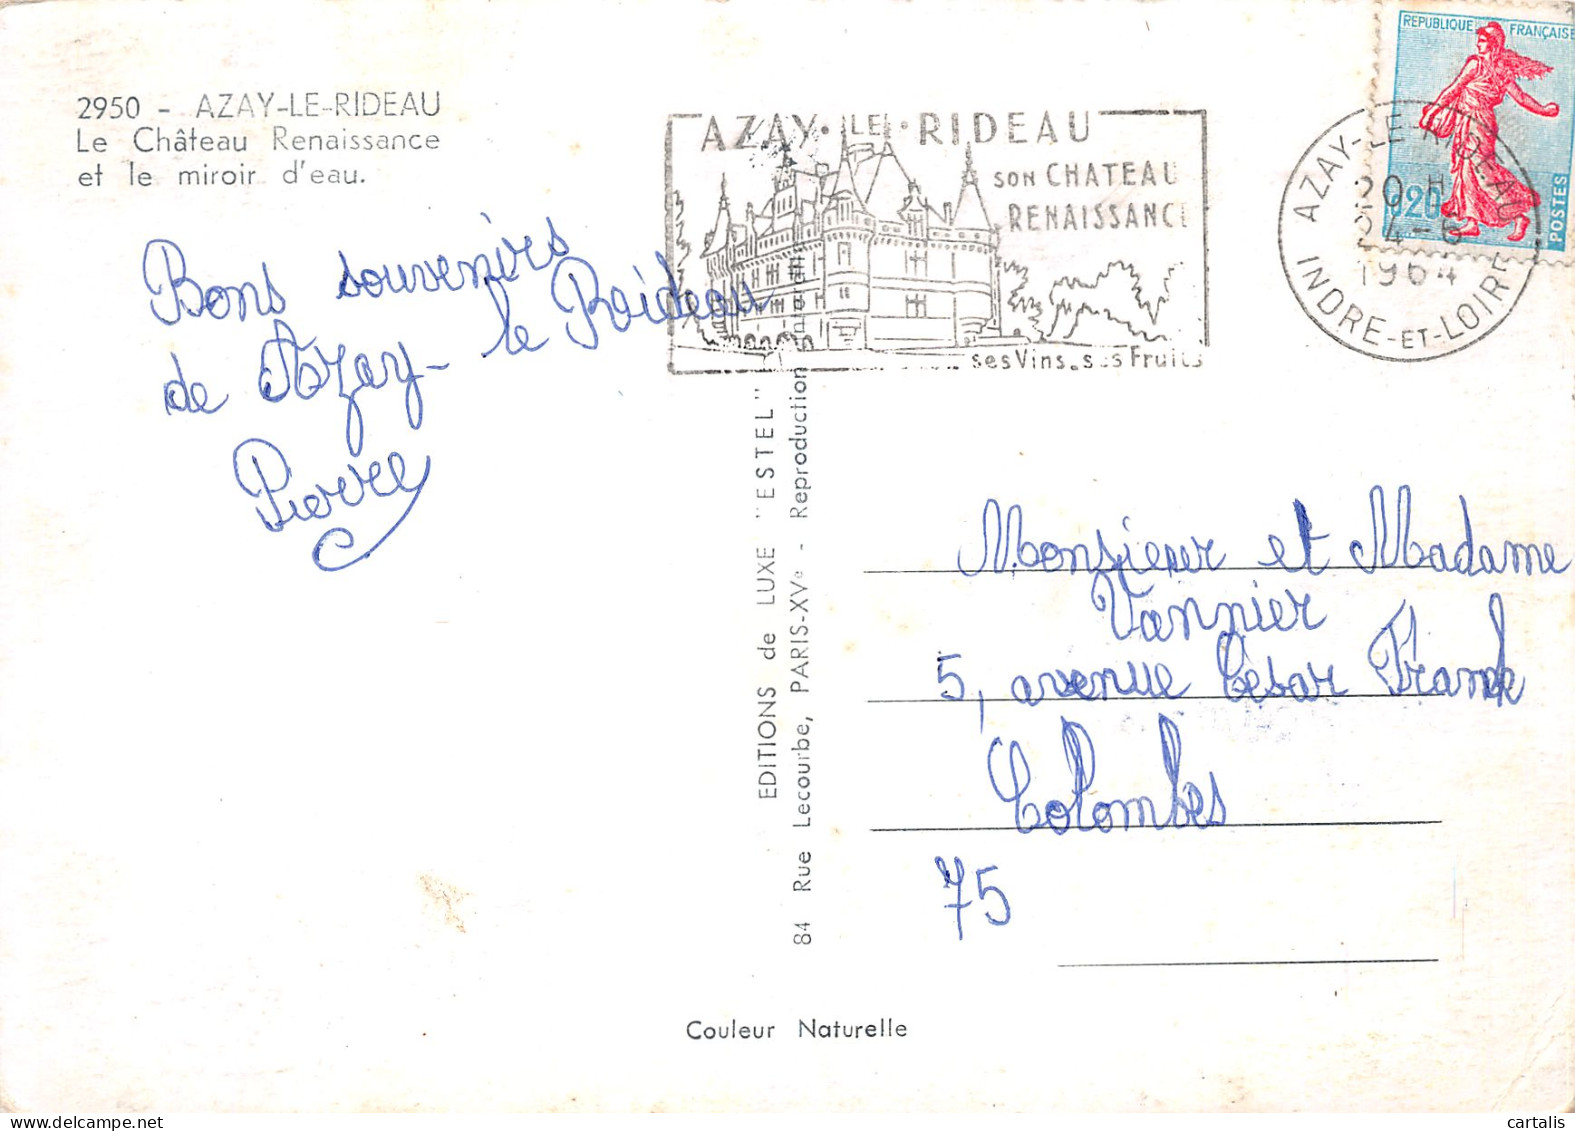 2950 - AZAY-LE-RIDEAU
Le Château Renaissance
et le miroir d'eau.
Bons souvenirs
de Azay-le Rideau
Pierre
AZAY·LE·RIDEAU
SON CHATEAU
RENAISSANCE
ses Vins. ses Fruits
AZAY-LE-RIDEAU
20 H
24-6
1964
INDRE-ET-LOIRE
REPUBLIQUE FRANÇAISE
0,20
POSTES
EDITIONS de LUXE "ESTEL"
84 Rue Lecourbe, PARIS-XVe - Reproduction
Monsieur et Madame
Vannier
5, avenue César Frank
Colombes
75
Couleur Naturelle
cartalis